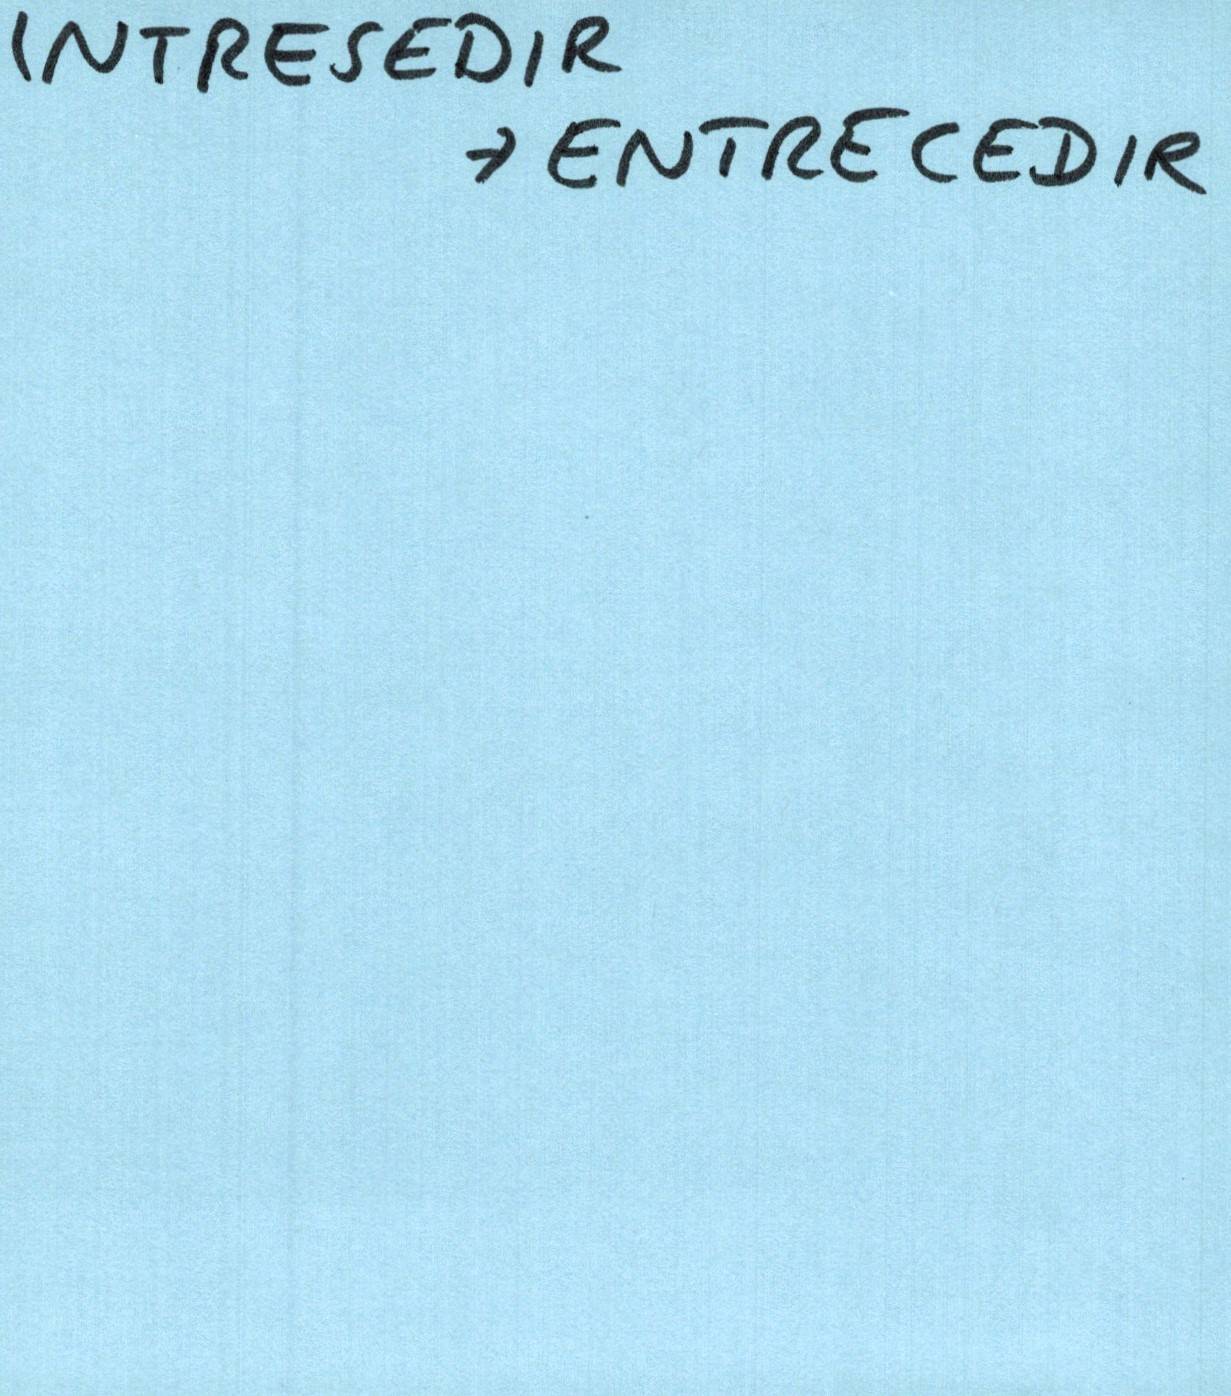 INTRESEDIR
→ ENTRECEDIR